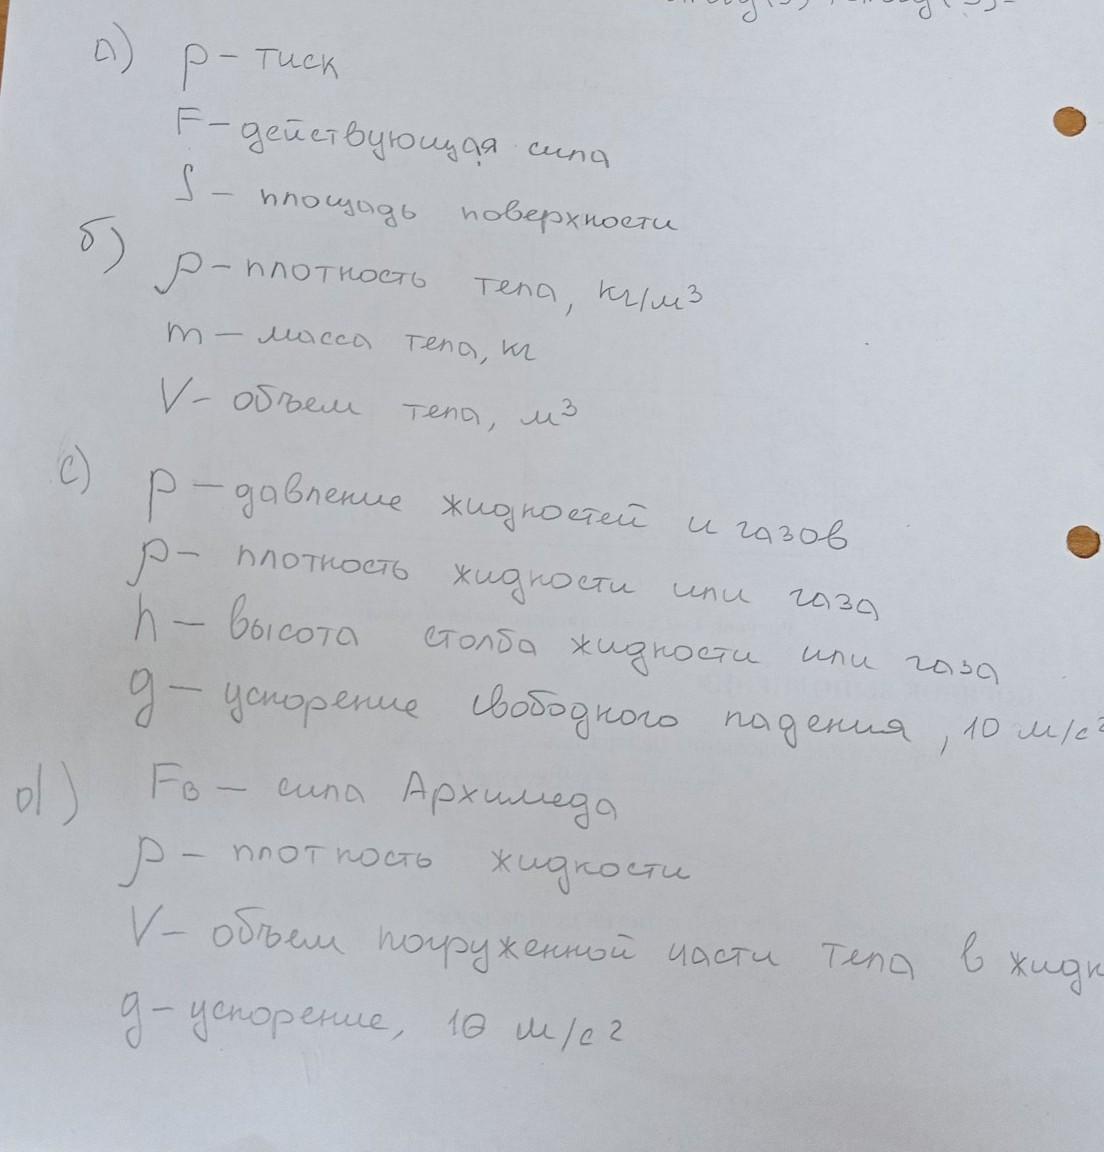 а) p – тиск
F – действующая сила
S – площадь поверхности
б) ρ – плотность тела, кг/м³
m – масса тела, кг
V – объем тела, м³
c) p – давление жидкостей и газов
ρ – плотность жидкости или газа
h – высота столба жидкости или газа
g – ускорение свободного падения, 10 м/с²
d) Fв – сила Архимеда
ρ – плотность жидкости
V – объем погруженной части тела в жидк
g – ускорение, 10 м/с²